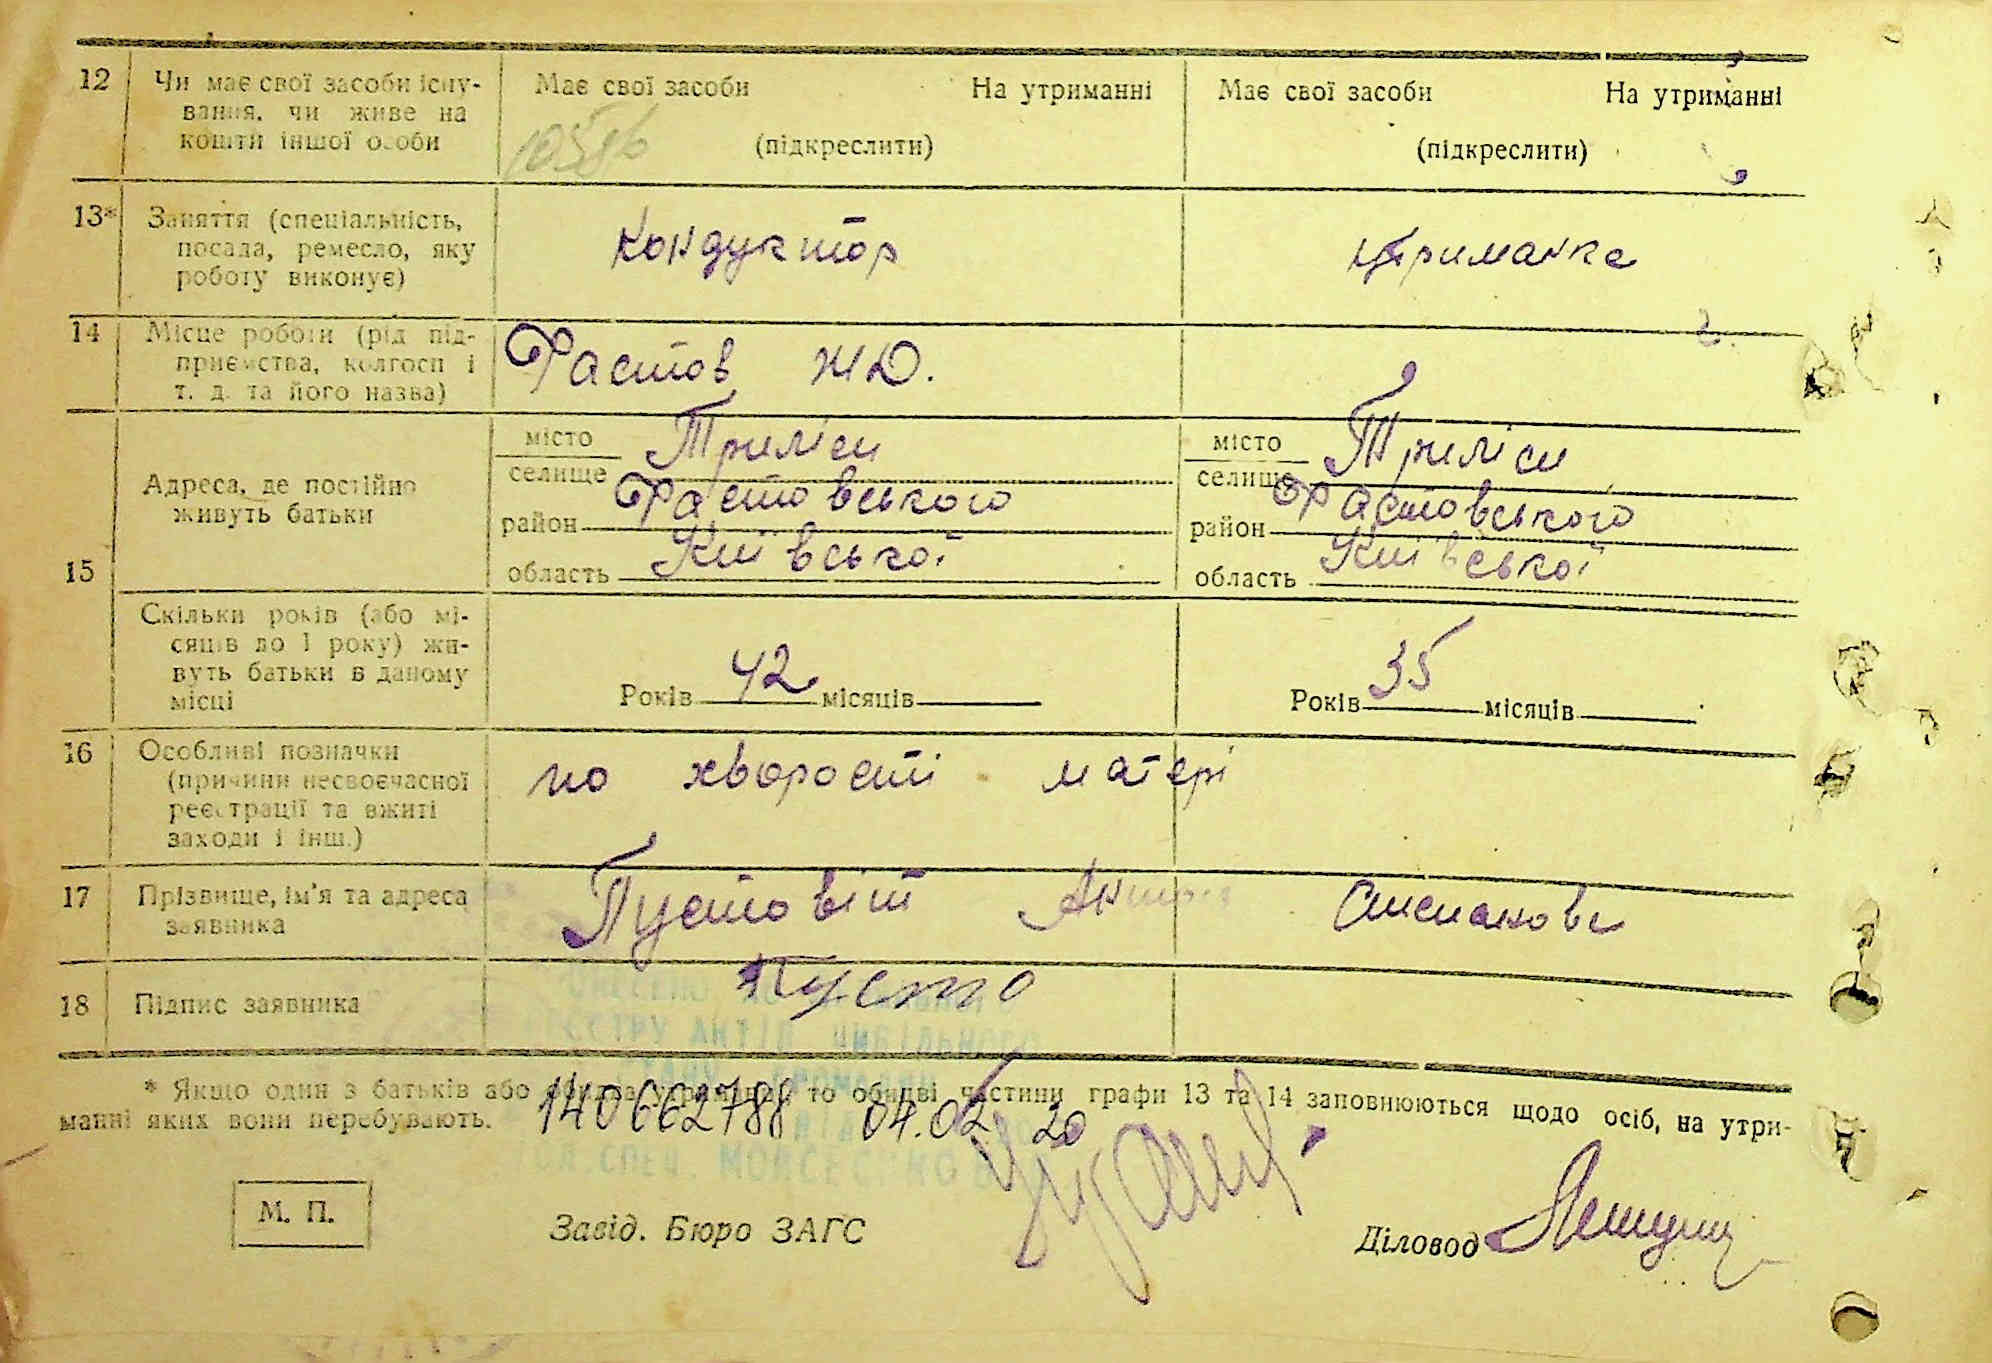 12 Чи має свої засоби існу-
вання, чи живе на
кошти іншої особи
Має свої засоби На утриманні
(підкреслити)
Має свої засоби На утриманні
(підкреслити)
13* Заняття (спеціальність,
посада, ремесло, яку
роботу виконує)
Кондуктор
14 Місце роботи (рід під-
приємства, колгосп і
т. д. та його назва)
Фастов ЖД.
15 Адреса, де постійно
живуть батьки
місто Триліси
селище
район Фастовського
область Київської
місто Триліси
селище
район Фастовського
область Київської
Скільки років (або мі-
сяців до 1 року) жи-
вуть батьки в даному
місці
Років 42 місяців
Років 35 місяців
16 Особливі позначки
(причини несвоєчасної
реєстрації та вжиті
заходи і інш.)
по хворості матері
17 Прізвище, ім'я та адреса
заявника
Пустовіт
18 Підпис заявника
Пусто
* Якщо один з батьків або утриманні, то обидві частини графи 13 та 14 заповнюються щодо осіб, на утри-
манні яких вони перебувають.
140662788 04.02 20
М. П.
Завід. Бюро ЗАГС
Діловод